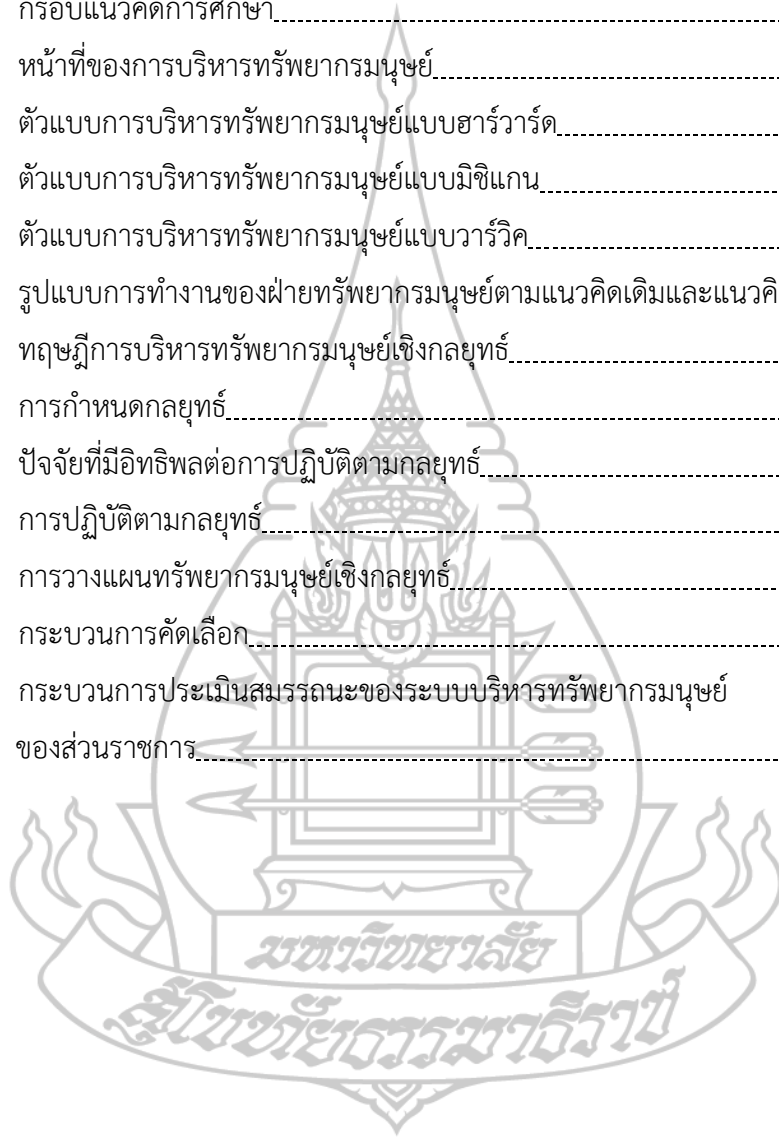 กรอบแนวคิดการศึกษา
หน้าที่ของการบริหารทรัพยากรมนุษย์
ตัวแบบการบริหารทรัพยากรมนุษย์แบบฮาร์วาร์ด
ตัวแบบการบริหารทรัพยากรมนุษย์แบบมิชิแกน
ตัวแบบการบริหารทรัพยากรมนุษย์แบบวาร์วิค
รูปแบบการทำงานของฝ่ายทรัพยากรมนุษย์ตามแนวคิดเดิมและแนวคิ
ทฤษฎีการบริหารทรัพยากรมนุษย์เชิงกลยุทธ์
การกำหนดกลยุทธ์
ปัจจัยที่มีอิทธิพลต่อการปฏิบัติตามกลยุทธ์
การปฏิบัติตามกลยุทธ์
การวางแผนทรัพยากรมนุษย์เชิงกลยุทธ์
กระบวนการคัดเลือก
กระบวนการประเมินสมรรถนะของระบบบริหารทรัพยากรมนุษย์
ของส่วนราชการ
มหาวิทยาลัย
สุโขทัยธรรมาธิราช